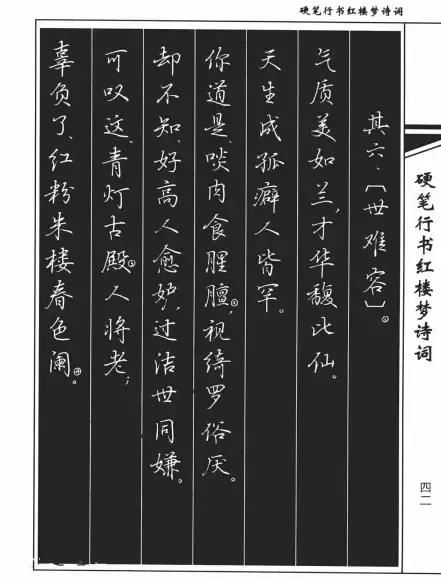 硬笔行书红楼梦诗词
其六、〔世难容〕①。
气质美如兰，才华馥比仙。
天生成孤癖人皆罕。
你道是、啖肉食腥膻②，视绮罗俗厌。
却不知、好高人愈妒，过洁世同嫌。
可叹这、青灯古殿③人将老；
辜负了、红粉朱楼春色阑④。
硬笔行书红楼梦诗词
四二